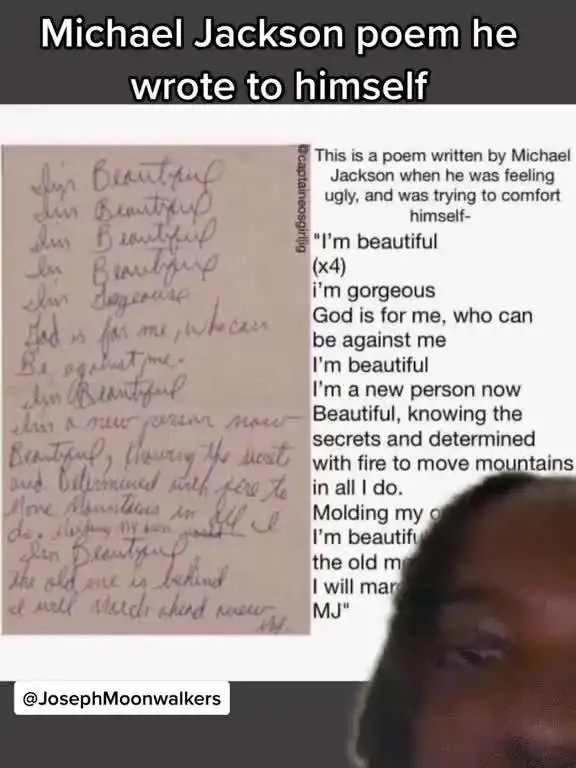 Michael Jackson poem he
wrote to himself
I'm Beautiful
I'm Beautiful
I'm Beautiful
I'm Beautiful
I'm Gorgeouse
God is for me, who can
Be against me.
I'm Beautiful
I'm a new person now
Beautiful, Knowing the secrets
and Determined with fire to
Move Mountains in all I
do. Molding my own
I'm Beautiful
the old me is behind
I will March ahead anew
MJ.
@captaineosgirljg
This is a poem written by Michael
Jackson when he was feeling
ugly, and was trying to comfort
himself-
"I'm beautiful
(x4)
i'm gorgeous
God is for me, who can
be against me
I'm beautiful
I'm a new person now
Beautiful, knowing the
secrets and determined
with fire to move mountains
in all I do.
Molding my
I'm beautifu
the old m
I will mar
MJ"
@JosephMoonwalkers